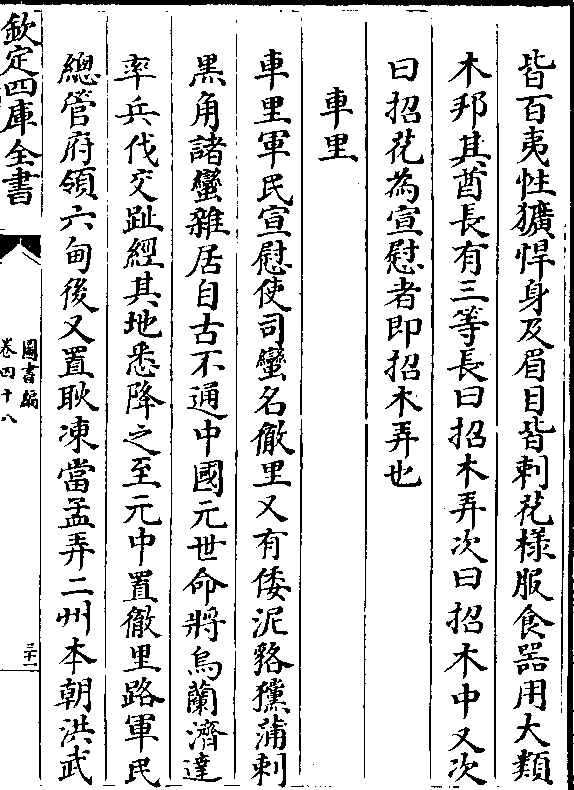 皆百夷性獷悍身及眉目皆刺花樣服食器用大類
木邦其酋長有三等長曰招木弄次曰招木中又次
曰招花為宣慰者即招木弄也
車里
車里軍民宣慰使司蠻名徹里又有倭泥貉獛蒲剌
黑角諸蠻雜居自古不通中國元世命將烏蘭濟達
率兵伐交趾經其地悉降之至元中置徹里路軍民
總管府領六甸後又置耿凍當孟弄二州本朝洪武
欽定四庫全書
圖書編
卷四十八